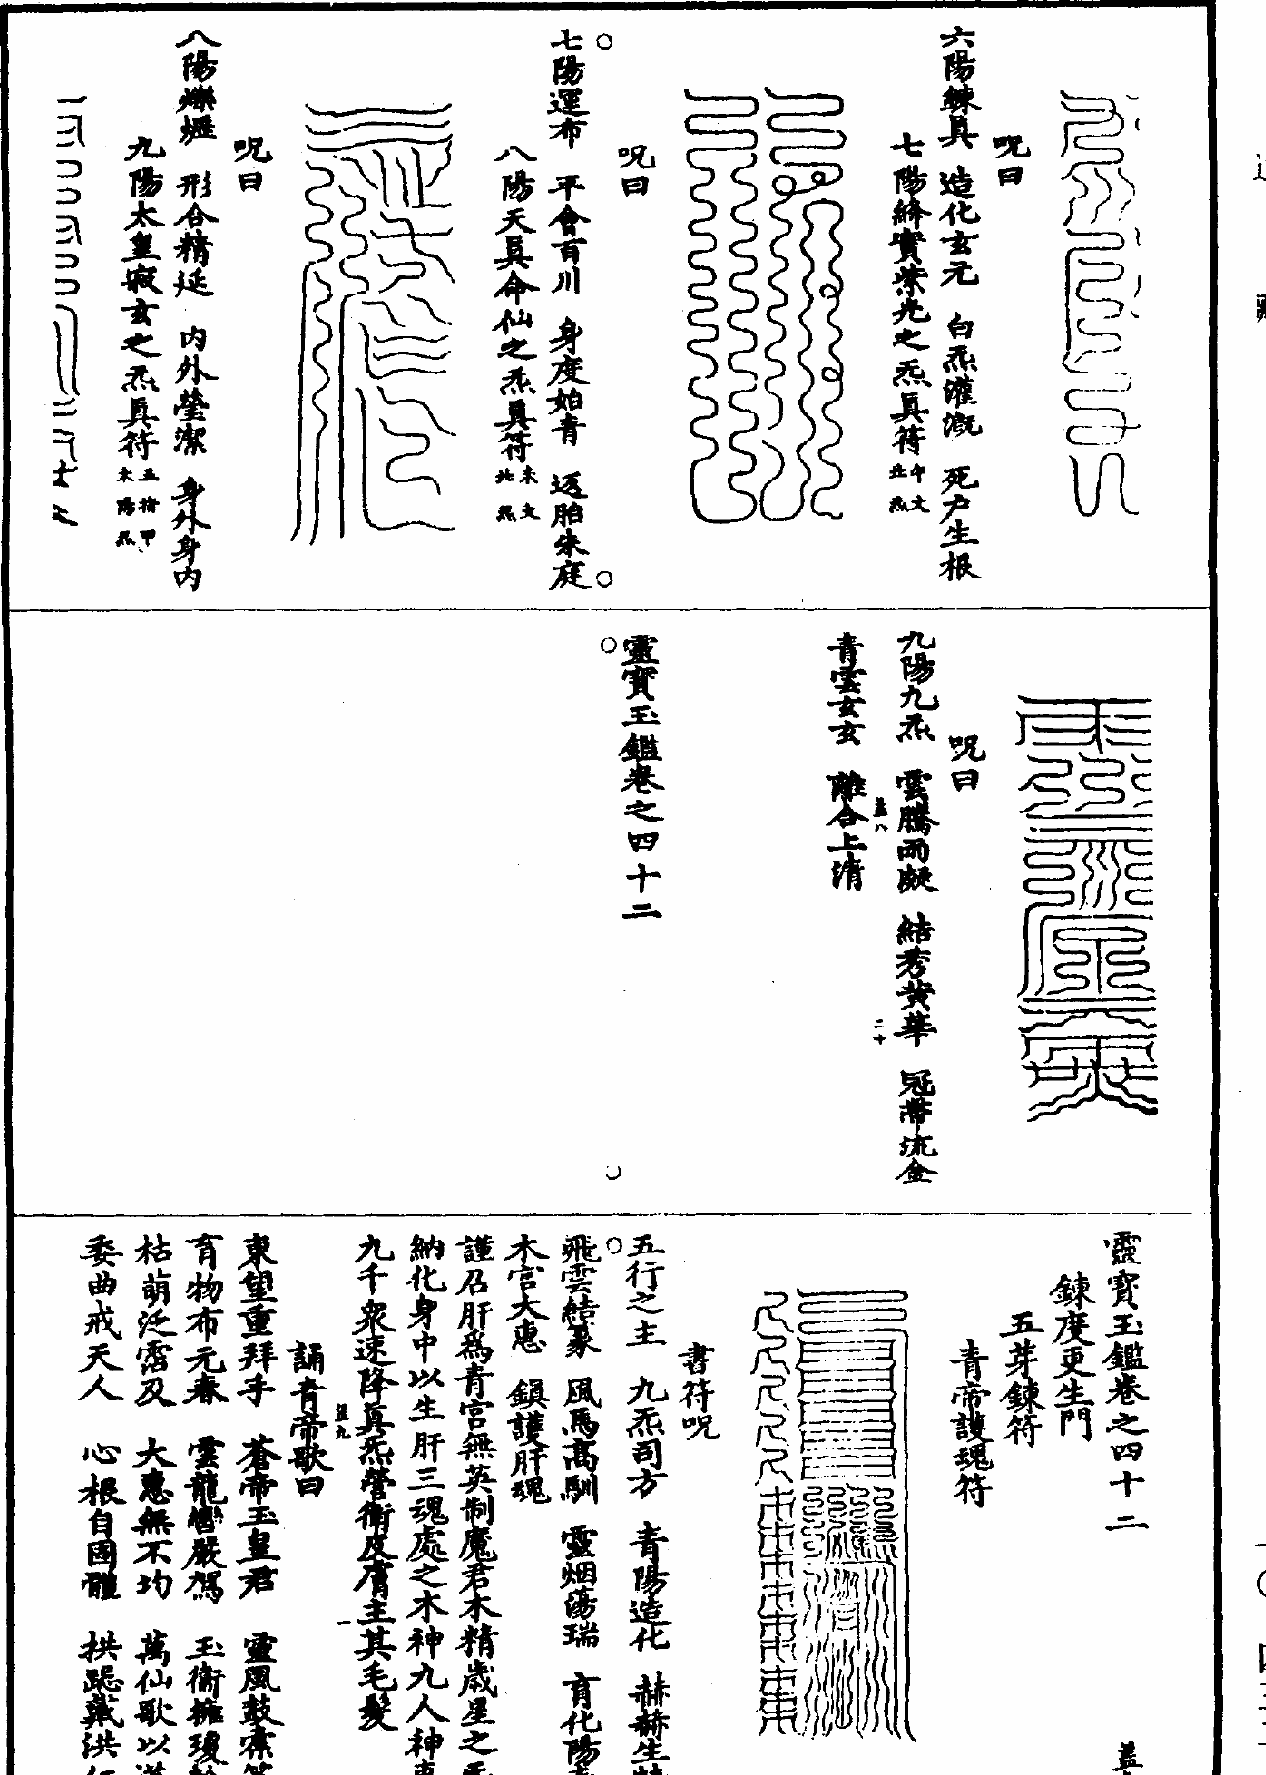 呪曰
六陽鍊眞　造化玄元　白炁灌溉　死戶生根
七陽絳寶紫光之炁眞符
午文
北炁
呪曰
七陽運布　平會百川　身度始青　返胎朱庭
八陽天眞命仙之炁眞符
未文
北炁
呪曰
八陽爍爥　形合精延　内外瑩潔　身外身内
九陽太皇寂玄之炁眞符
呪曰
九陽九炁　雲騰雨凝　結秀黃華　冠帶流金
青雲玄玄　離合上清
靈寶玉鑑卷之四十二
靈寶玉鑑卷之四十二
鍊度更生門
五芽鍊符
青帝護魂符
書符呪
五行之主　九炁司方　青陽造化　赫赫生
飛雲結篆　風馬高馴　靈烟蕩瑞　育化陽
木宮大惠　鎮護肝魂
謹召肝爲青宮無英制魔君木精歲星之
納化身中以生肝三魂處之木神九人神
九千衆速降眞炁營衛皮膚主其毛髮
誦青帝歌曰
東望重拜手　蒼帝玉皇君　靈風鼓
育物布元春　雲龍嚴駕　玉衛擁瓊
枯萌泛霑及　大惠無不均　萬仙歌以
委曲戒天人　心根自固體　拱跽戴洪